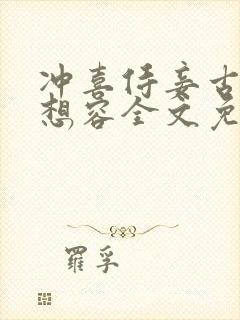 冲喜侍妾古
想容全文免
羅孚